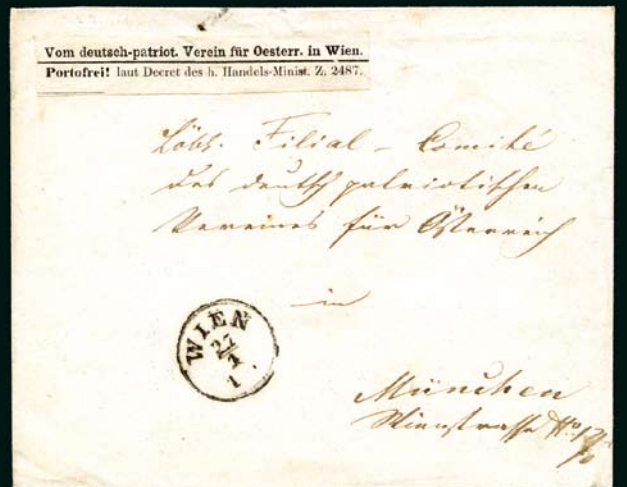 Vom deutsch-patriot. Verein für Oesterr. in Wien.
Portofrei! laut Decret des h. Handels-Minist. Z. 2487.
Löbl. Filial-Comité
des deutsch patriotischen
Vereines für Österreich
in
WIEN
27
1
1.
München
Wienstrasse No